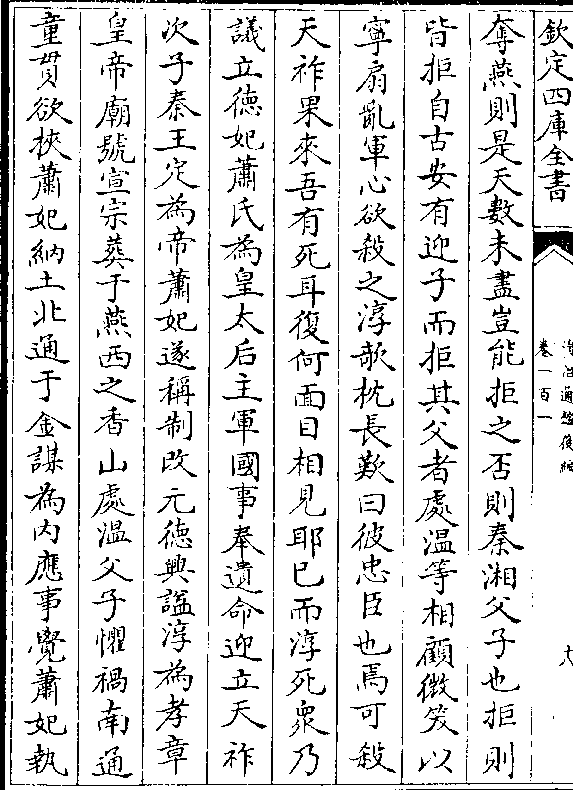 欽定四庫全書
資治通鑑後編
卷一百一
奪燕則是天數未盡豈能拒之否則秦湘父子也拒則
皆拒自古安有迎子而拒其父者處溫等相顧微笑以
寧扇亂軍心欲殺之淳欹枕長歎曰彼忠臣也焉可殺
天祚果來吾有死耳復何面目相見耶已而淳死衆乃
議立德妃蕭氏為皇太后主軍國事奉遺命迎立天祚
次子秦王定為帝蕭妃遂稱制改元德興諡淳為孝章
皇帝廟號宣宗葬于燕西之香山處溫父子懼禍南通
童貫欲挾蕭妃納土北通于金謀為内應事覺蕭妃執